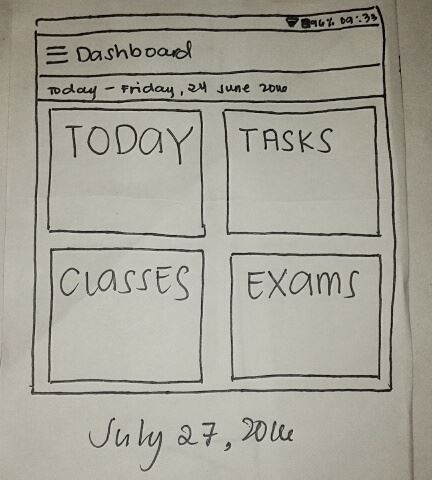 96% 09:33
Dashboard
Today - Friday, 24 June 2016
TODAY
TASKS
CLASSES
EXAMS
July 27, 2016